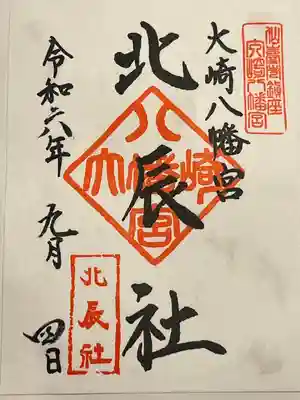 仙臺市鎮座
大崎八幡宮
大崎八幡宮
北辰社
八
大崎
八幡
宮
北辰社
令和六年 九月 四日